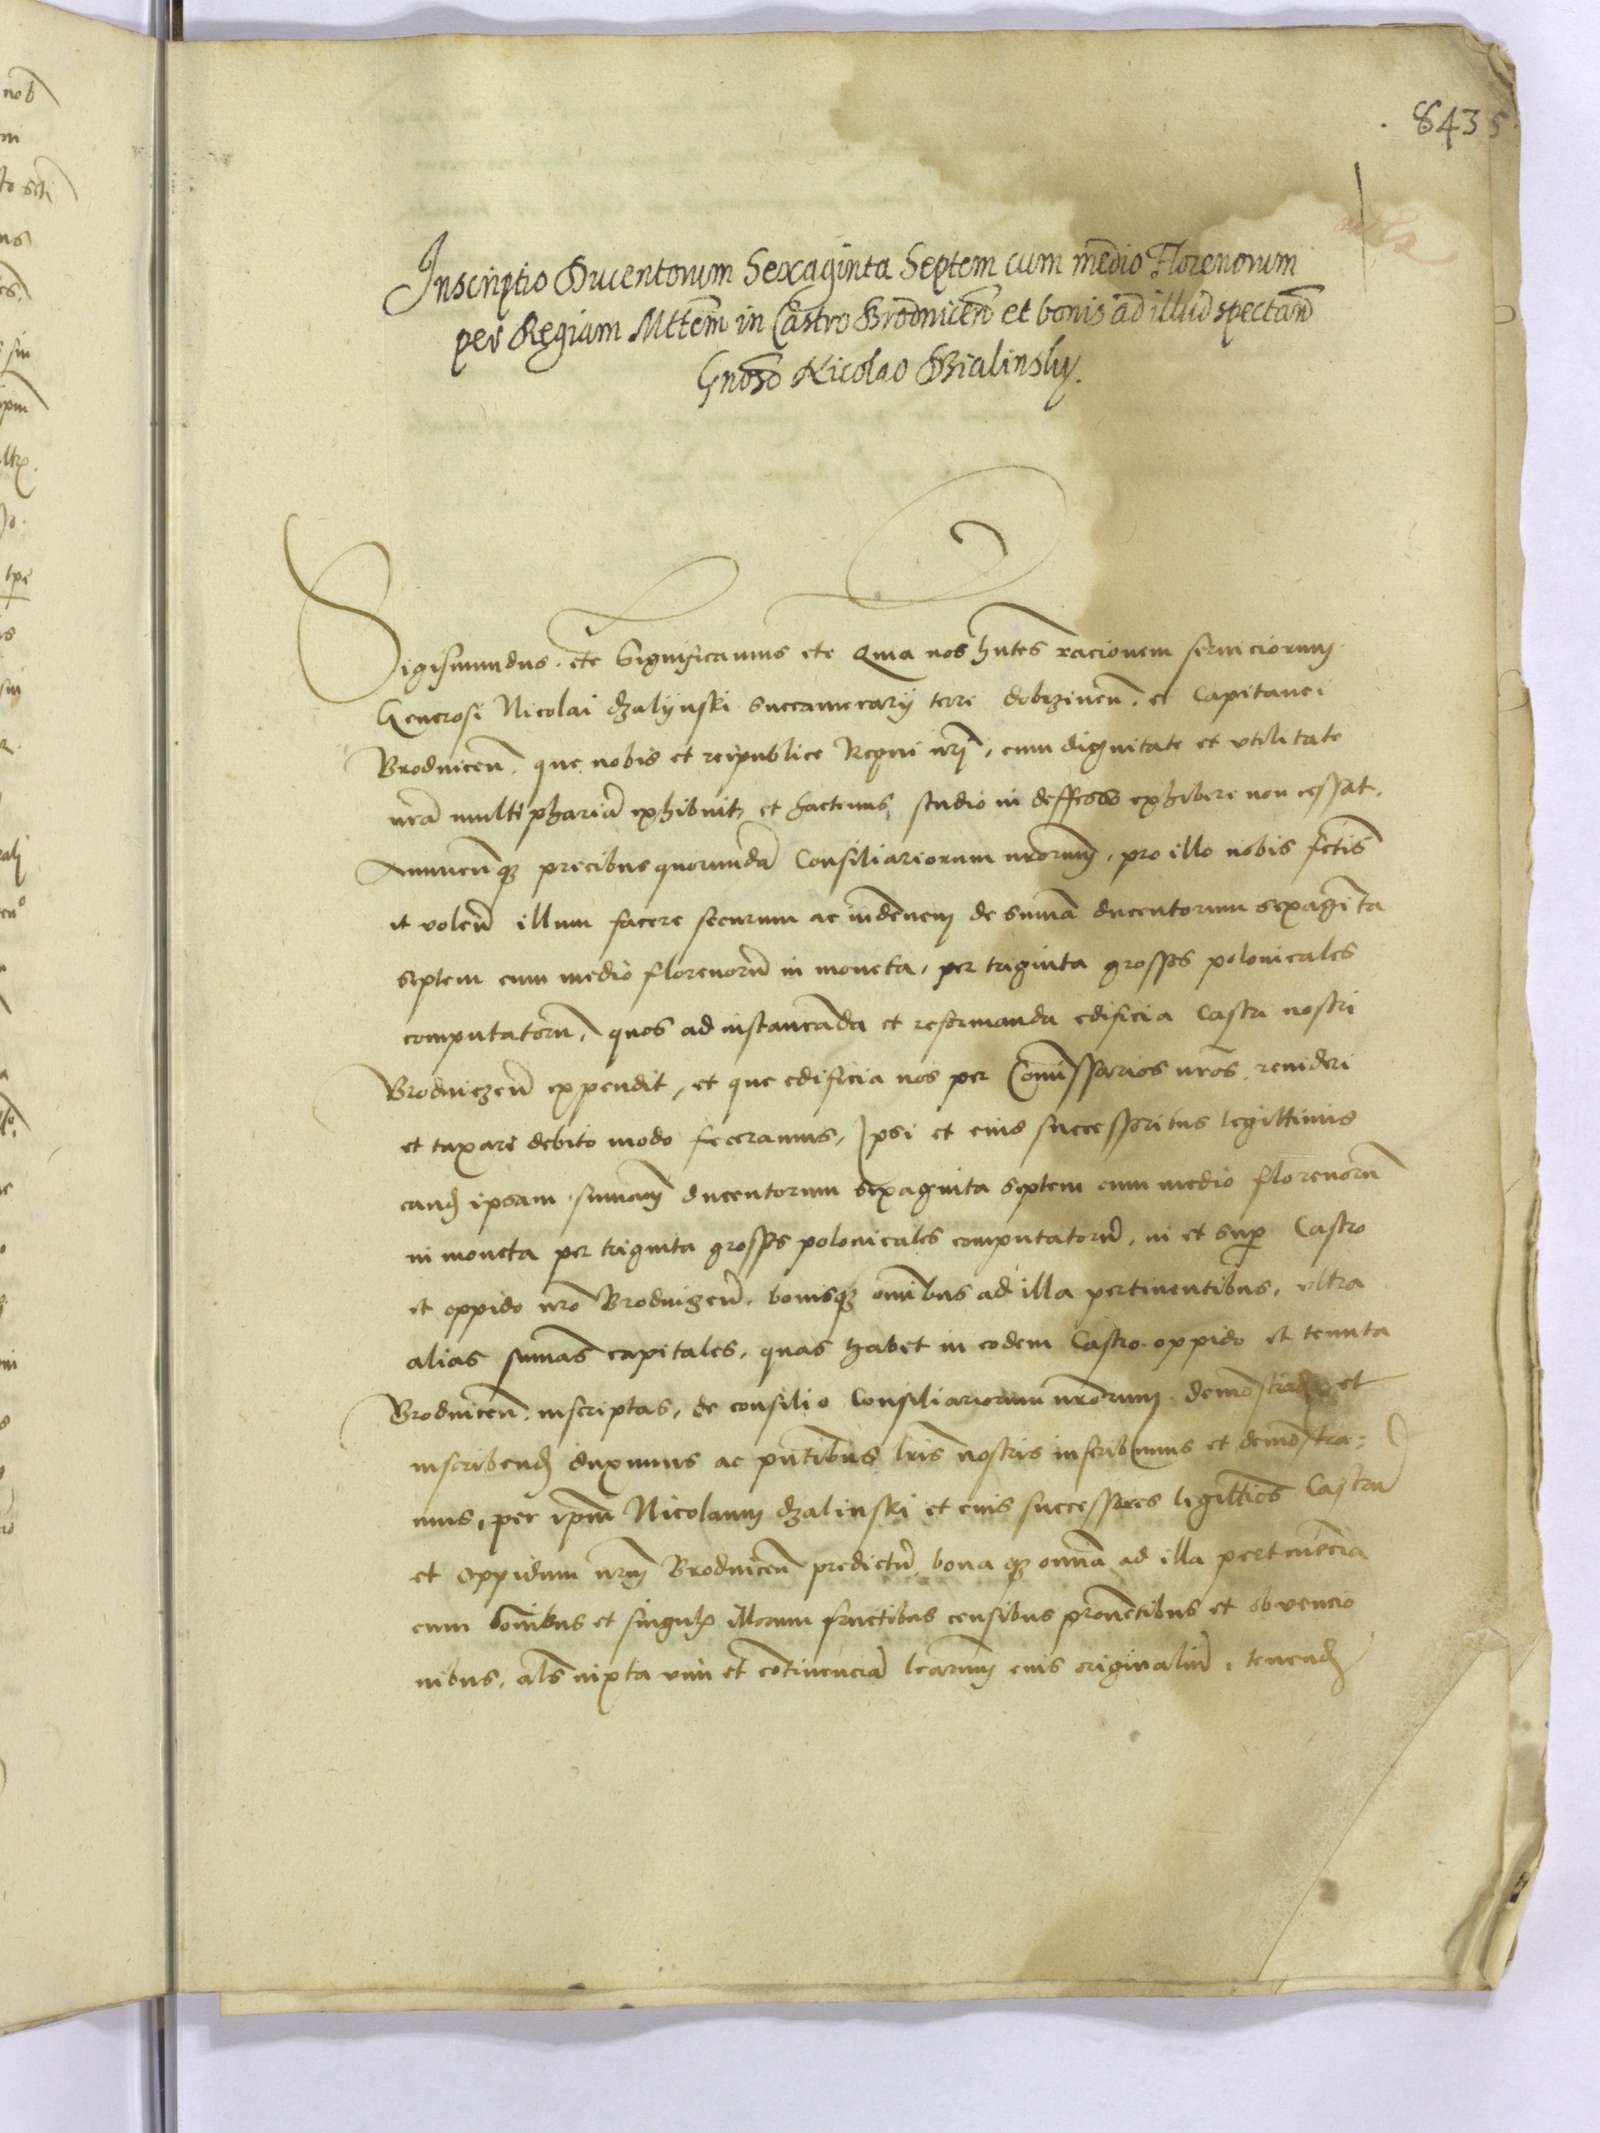 8435
Inscriptio Ducentorum Sexaginta Septem cum medio Florenorum
per Regiam Mttem in Castro Brodnicen et bonis ad illud spectan
Gnoso Nicolao Dzialinsky.
Sigismundus etc Significamus etc Quia nos hntes racionem serviciorum
Generosi Nicolai dzalijnski Succamerarij terre dobrzinen. et Capitanei
Brodnicen. que nobis et reipublice Regni nri, cum dignitate et utilitate
nra multiphariã exhibuit, et hactenus, studio indeffesso exhibere non cessat.
Annuenqz precibus quorundã Consiliariorum nrorum, pro illo nobis fctis
et volen illum facere securum ac indenem de sumã ducentorum sexaginta
septem cum medio florenorũ in moneta, per triginta grosses polonicales
computatorũ, quos ad instauranda et reformanda edificia Castri nostri
Brodniczen expendit, et que edificia nos per Comissarios nros revideri
et taxari debito modo feceramus, Ipsi et eius successoribus legittimis
eand ipsam sumam ducentorum sexaginta septem cum medio florenorũ
in moneta per triginta grosses polonicales computatorũ, in et sup Castro
et oppido nro Brodnizen. bonisqz omibus ad illa pertinentibus, ultra
alias sumas capitales, quas habet in eodem Castro oppido et tenuta
Brodnicen. inscriptas, de consilio Consiliariorum nrorum et
inscribend duximus ac pntibus lris nostris inscribimus et demostra=
mus, per ipm Nicolaum dzalinski et eius successores legittios Castrũ
et oppidum nrm Brodnicen predictũ, bona qz omia ad illa pertinencia
cum omibus et singul illorum fructibus censibus proventibus et obvencio
nibus, als iuxta vim et cotinenciã learum eius originaliũ, tenend